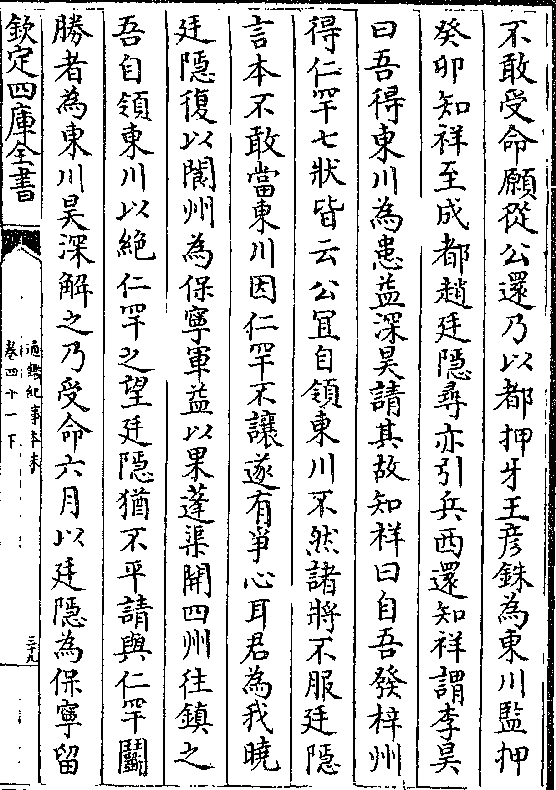 不敢受命願從公還乃以都押牙王彦銖為東川監押
癸卯知祥至成都趙廷隱尋亦引兵西還知祥謂李昊
曰吾得東川為患益深昊請其故知祥曰自吾發梓州
得仁罕七狀皆云公宜自領東川不然諸將不服廷隱
言本不敢當東川因仁罕不讓遂有爭心耳君為我曉
廷隱復以閬州為保寧軍益以果蓬渠開四州往鎮之
吾自領東川以絶仁罕之望廷隱猶不平請與仁罕鬭
勝者為東川昊深解之乃受命六月以廷隱為保寧留
欽定四庫全書
通鑑紀事本末
卷四十一下
三十九